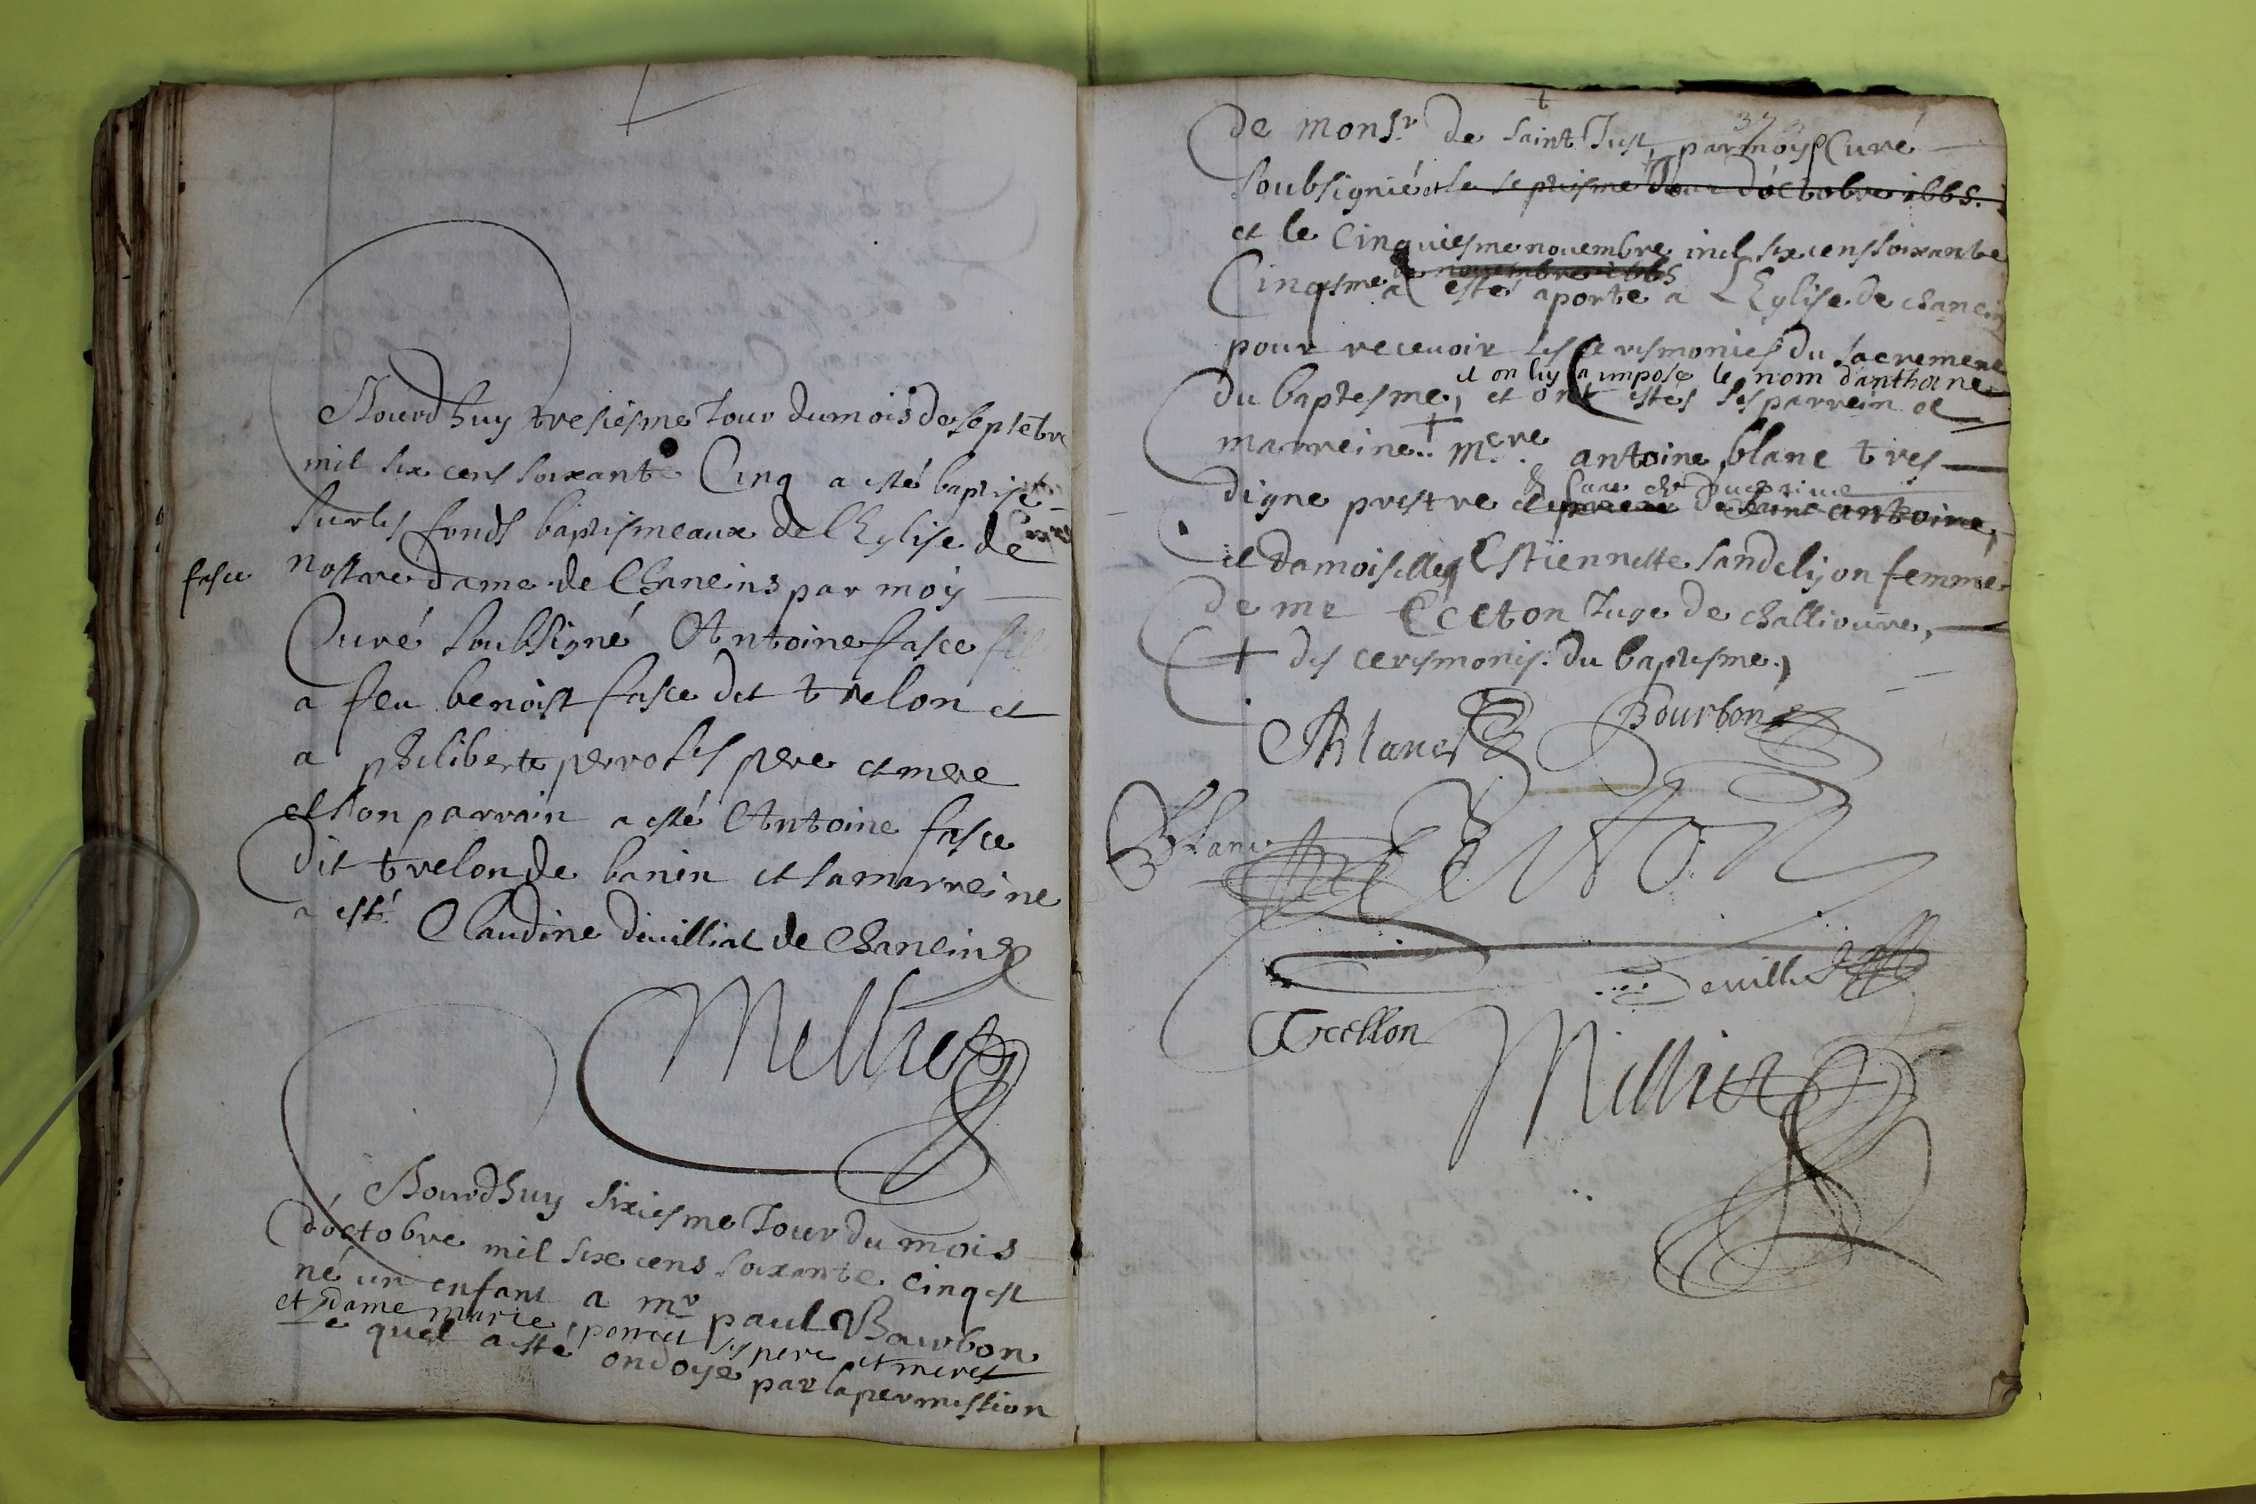 fasce
Aiourdhuy tresiesme Jour du mois de septebre
mil six cens soixante Cinq a esté baptisé
sur les fonds baptismeaux de l'Eglise de
nostre dame de Chaneins par moy
Curé soubsigné Antoine fasce
a feu benoist fasce dit trelon et
a philiberte perrot ses pere et mere
et son parrain a esté Antoine fasce
dit trelon de banin et sa marreine
a esté Claudine divilliat de Chaneins
Mellier
Aiourdhuy sixiesme Jour du mois
d'octobre mil six cens soixante cinq est
né un enfant a mr paul Bourbon
et dame marie ses pere et mere
le quel a esté ondoyé par la permission
de monsr de saint Just, par moy Curé
soubsignié et le septiesme Jour d'octobre 1665.
et le Cinquiesme novembre mil six cens soixante
de novembre 1665
Cinqsme a esté aporté a L'Eglise de chaneins
pour recevoir les ceresmonies du sacrement
et on luy a imposé le nom d'anthoine
du baptesme, et ont estés ses parrein et
marreine. antoine blanc tres
digne prestre de saint antoine,
et damoiselle Estiennette sandelyon femme
de mr Cecton Juge de challiouvre,
+ des ceresmonis. du baptesme.
ABlanc Bourbon
Blanc
Deville
Trellon
Mellier